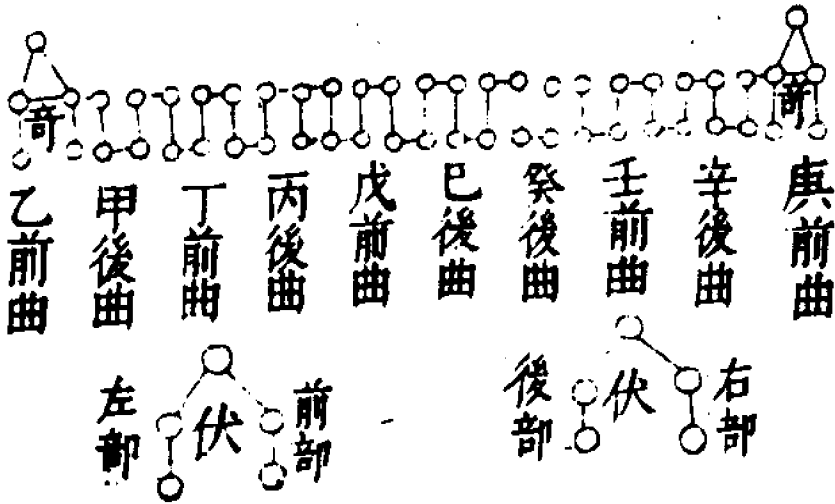 奇
奇
庚前曲
辛後曲
壬前曲
癸後曲
巳後曲
戊前曲
丙後曲
丁前曲
甲後曲
乙前曲
右部
伏
後部
前部
伏
左部